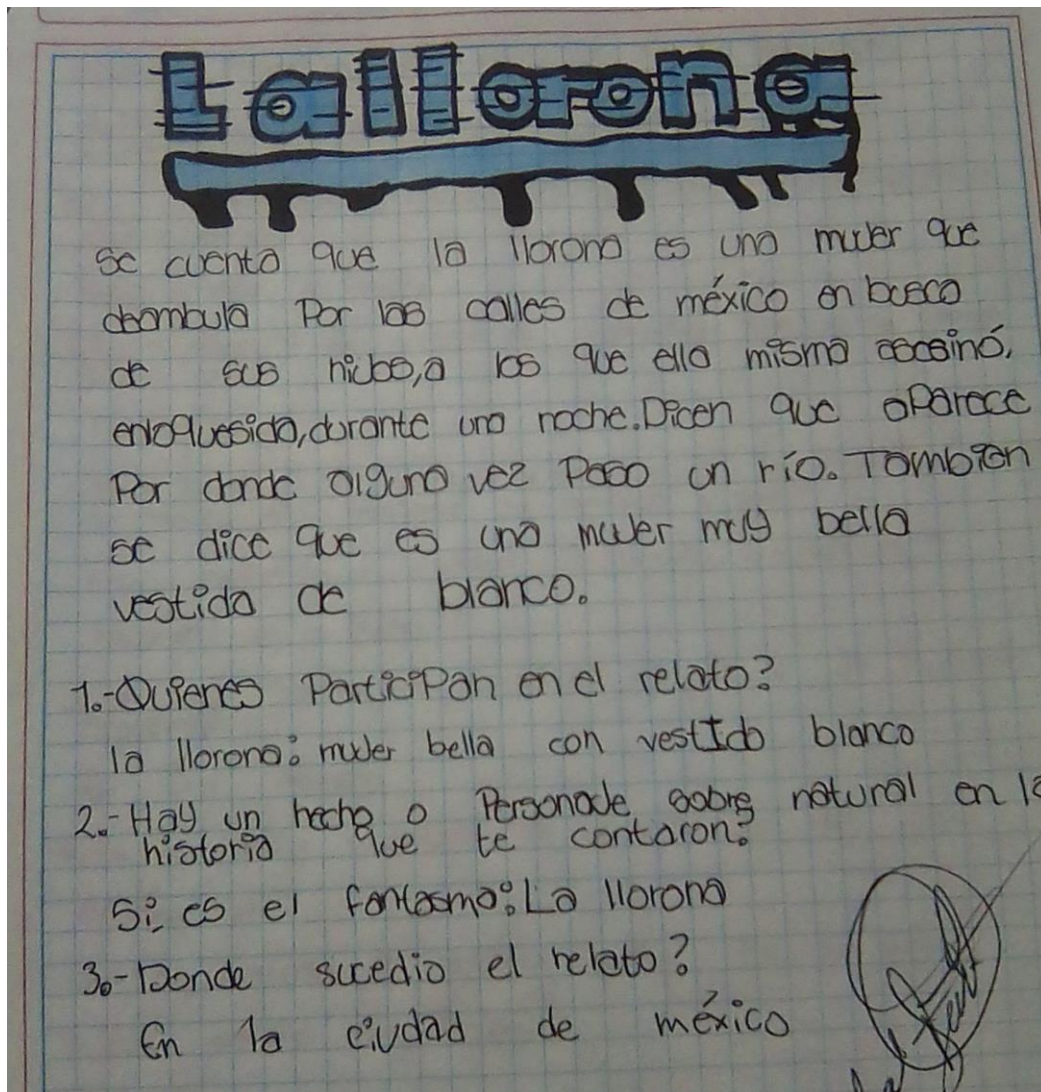 La llorona
se cuenta que la llorona es una mujer que
deambula Por las calles de méxico en busca
de sus hijos, a los que ella misma asesinó,
enloquesida, durante una noche. Dicen que aParece
Por donde alguna vez Paso un río. Tambien
se dice que es una mujer muy bella
vestida de blanco.
1.-Quienes ParticiPan en el relato?
la llorona: mujer bella con vestido blanco
2.-Hay un hecho o Personaje sobre natural en la
historia que te contaron?
Si, es el fantasma: La llorona
3.-Donde sucedio el relato?
En la ciudad de méxico